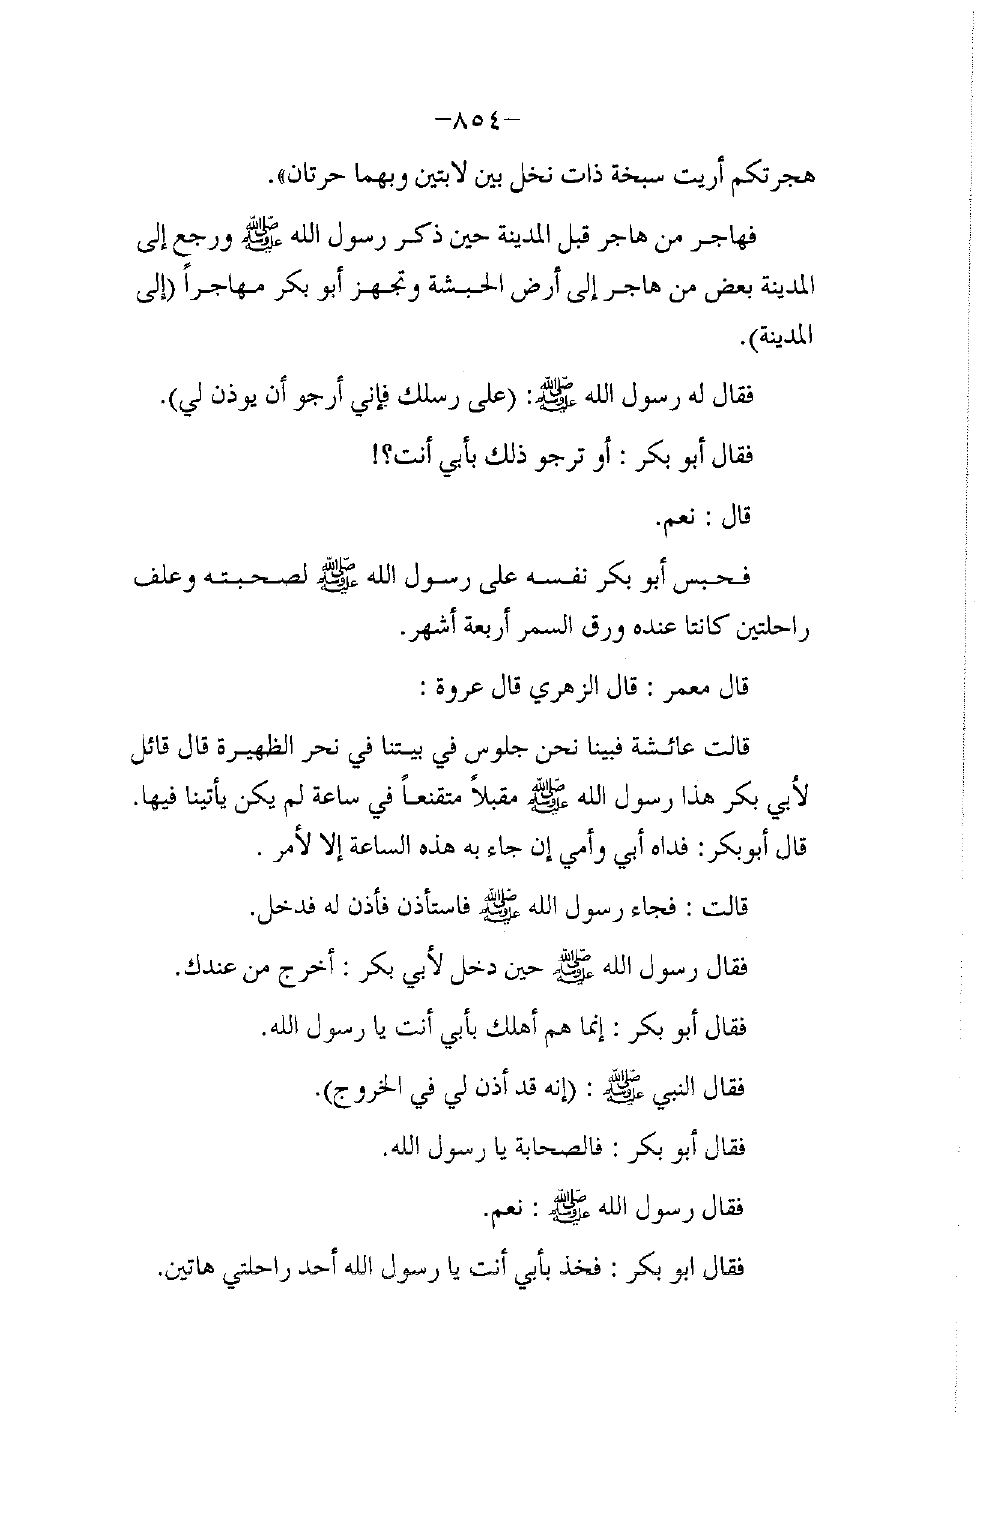 -٨٥٤-
هجرتكم أريت سبخة ذات نخل بين لابتين وبهما حرتان».
فهاجر من هاجر قبل المدينة حين ذكر رسول الله ﷺ ورجع إلى
المدينة بعض من هاجر إلى أرض الحبشة وتجهز أبو بكر مهاجراً (إلى
المدينة).
فقال له رسول الله ﷺ: (على رسلك فإني أرجو أن يوذن لي).
فقال أبو بكر : أو ترجو ذلك بأبي أنت؟!
قال : نعم.
فحبس أبو بكر نفسه على رسول الله ﷺ لصحبته وعلف
راحلتين كانتا عنده ورق السمر أربعة أشهر.
قال معمر : قال الزهري قال عروة :
قالت عائشة فبينا نحن جلوس في بيتنا في نحر الظهيرة قال قائل
لأبي بكر هذا رسول الله ﷺ مقبلاً متقنعاً في ساعة لم يكن يأتينا فيها.
قال أبوبكر: فداه أبي وأمي إن جاء به هذه الساعة إلا لأمر .
قالت : فجاء رسول الله ﷺ فاستأذن فأذن له فدخل.
فقال رسول الله ﷺ حين دخل لأبي بكر : أخرج من عندك.
فقال أبو بكر : إنما هم أهلك بأبي أنت يا رسول الله.
فقال النبي ﷺ : (إنه قد أذن لي في الخروج).
فقال أبو بكر : فالصحابة يا رسول الله.
فقال رسول الله ﷺ : نعم.
فقال ابو بكر : فخذ بأبي أنت يا رسول الله أحد راحلتي هاتين.